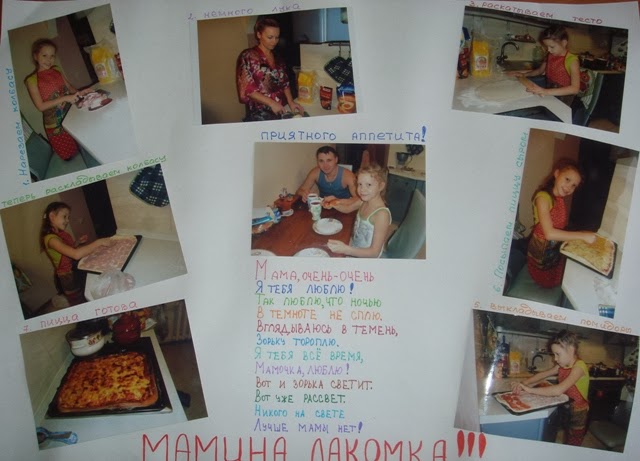 1. Нарезаем колбасу
2. немного лука
3. раскатываем тесто
теперь раскладываем колбасу
приятного аппетита!
5. выкладываем помидоры
6. Посыпаем пиццу сыром
7. пицца готова
Мама, очень-очень
Я тебя люблю!
Так люблю, что ночью
В темноте не сплю.
Вглядываюсь в темень,
Зорьку тороплю.
Я тебя всё время,
Мамочка, люблю!
Вот и зорька светит.
Вот уже рассвет.
Никого на свете
Лучше мамы нет!
МАМИНА ЛАКОМКА!!!